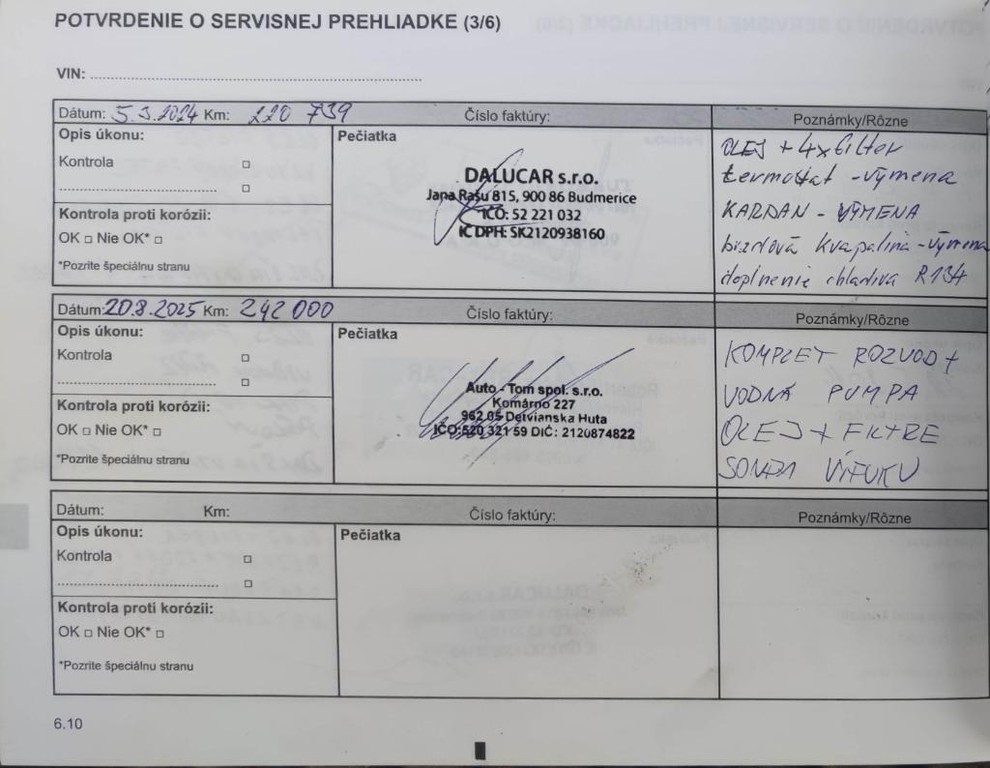 POTVRDENIE O SERVISNEJ PREHLIADKE (3/6)
VIN:
Dátum: 5.3.2024 Km: 220 739 Číslo faktúry: Poznámky/Rôzne
Opis úkonu:
Kontrola
Kontrola proti korózii:
OK Nie OK*
*Pozrite špeciálnu stranu
Pečiatka
DALUCAR s.r.o.
Jana Rašu 815, 900 86 Budmerice
IČO: 52 221 032
IČ DPH: SK2120938160
OLEJ + 4x filter
termostat - výmena
KARDAN - VÝMENA
brzdová kvapalina - výmena
doplnenie chladiva R134
Dátum: 20.8.2025 Km: 242 000 Číslo faktúry: Poznámky/Rôzne
Opis úkonu:
Kontrola
Kontrola proti korózii:
OK Nie OK*
*Pozrite špeciálnu stranu
Pečiatka
Auto - Tom spol. s.r.o.
Komárno 227
962 05 Detvianska Huta
IČO:520 321 59 DIČ: 2120874822
KOMPLET ROZVOD +
VODNÁ PUMPA
OLEJ + FILTRE
SONDA VÝFUKU
Dátum: Km: Číslo faktúry: Poznámky/Rôzne
Opis úkonu:
Kontrola
Kontrola proti korózii:
OK Nie OK*
*Pozrite špeciálnu stranu
Pečiatka
6.10